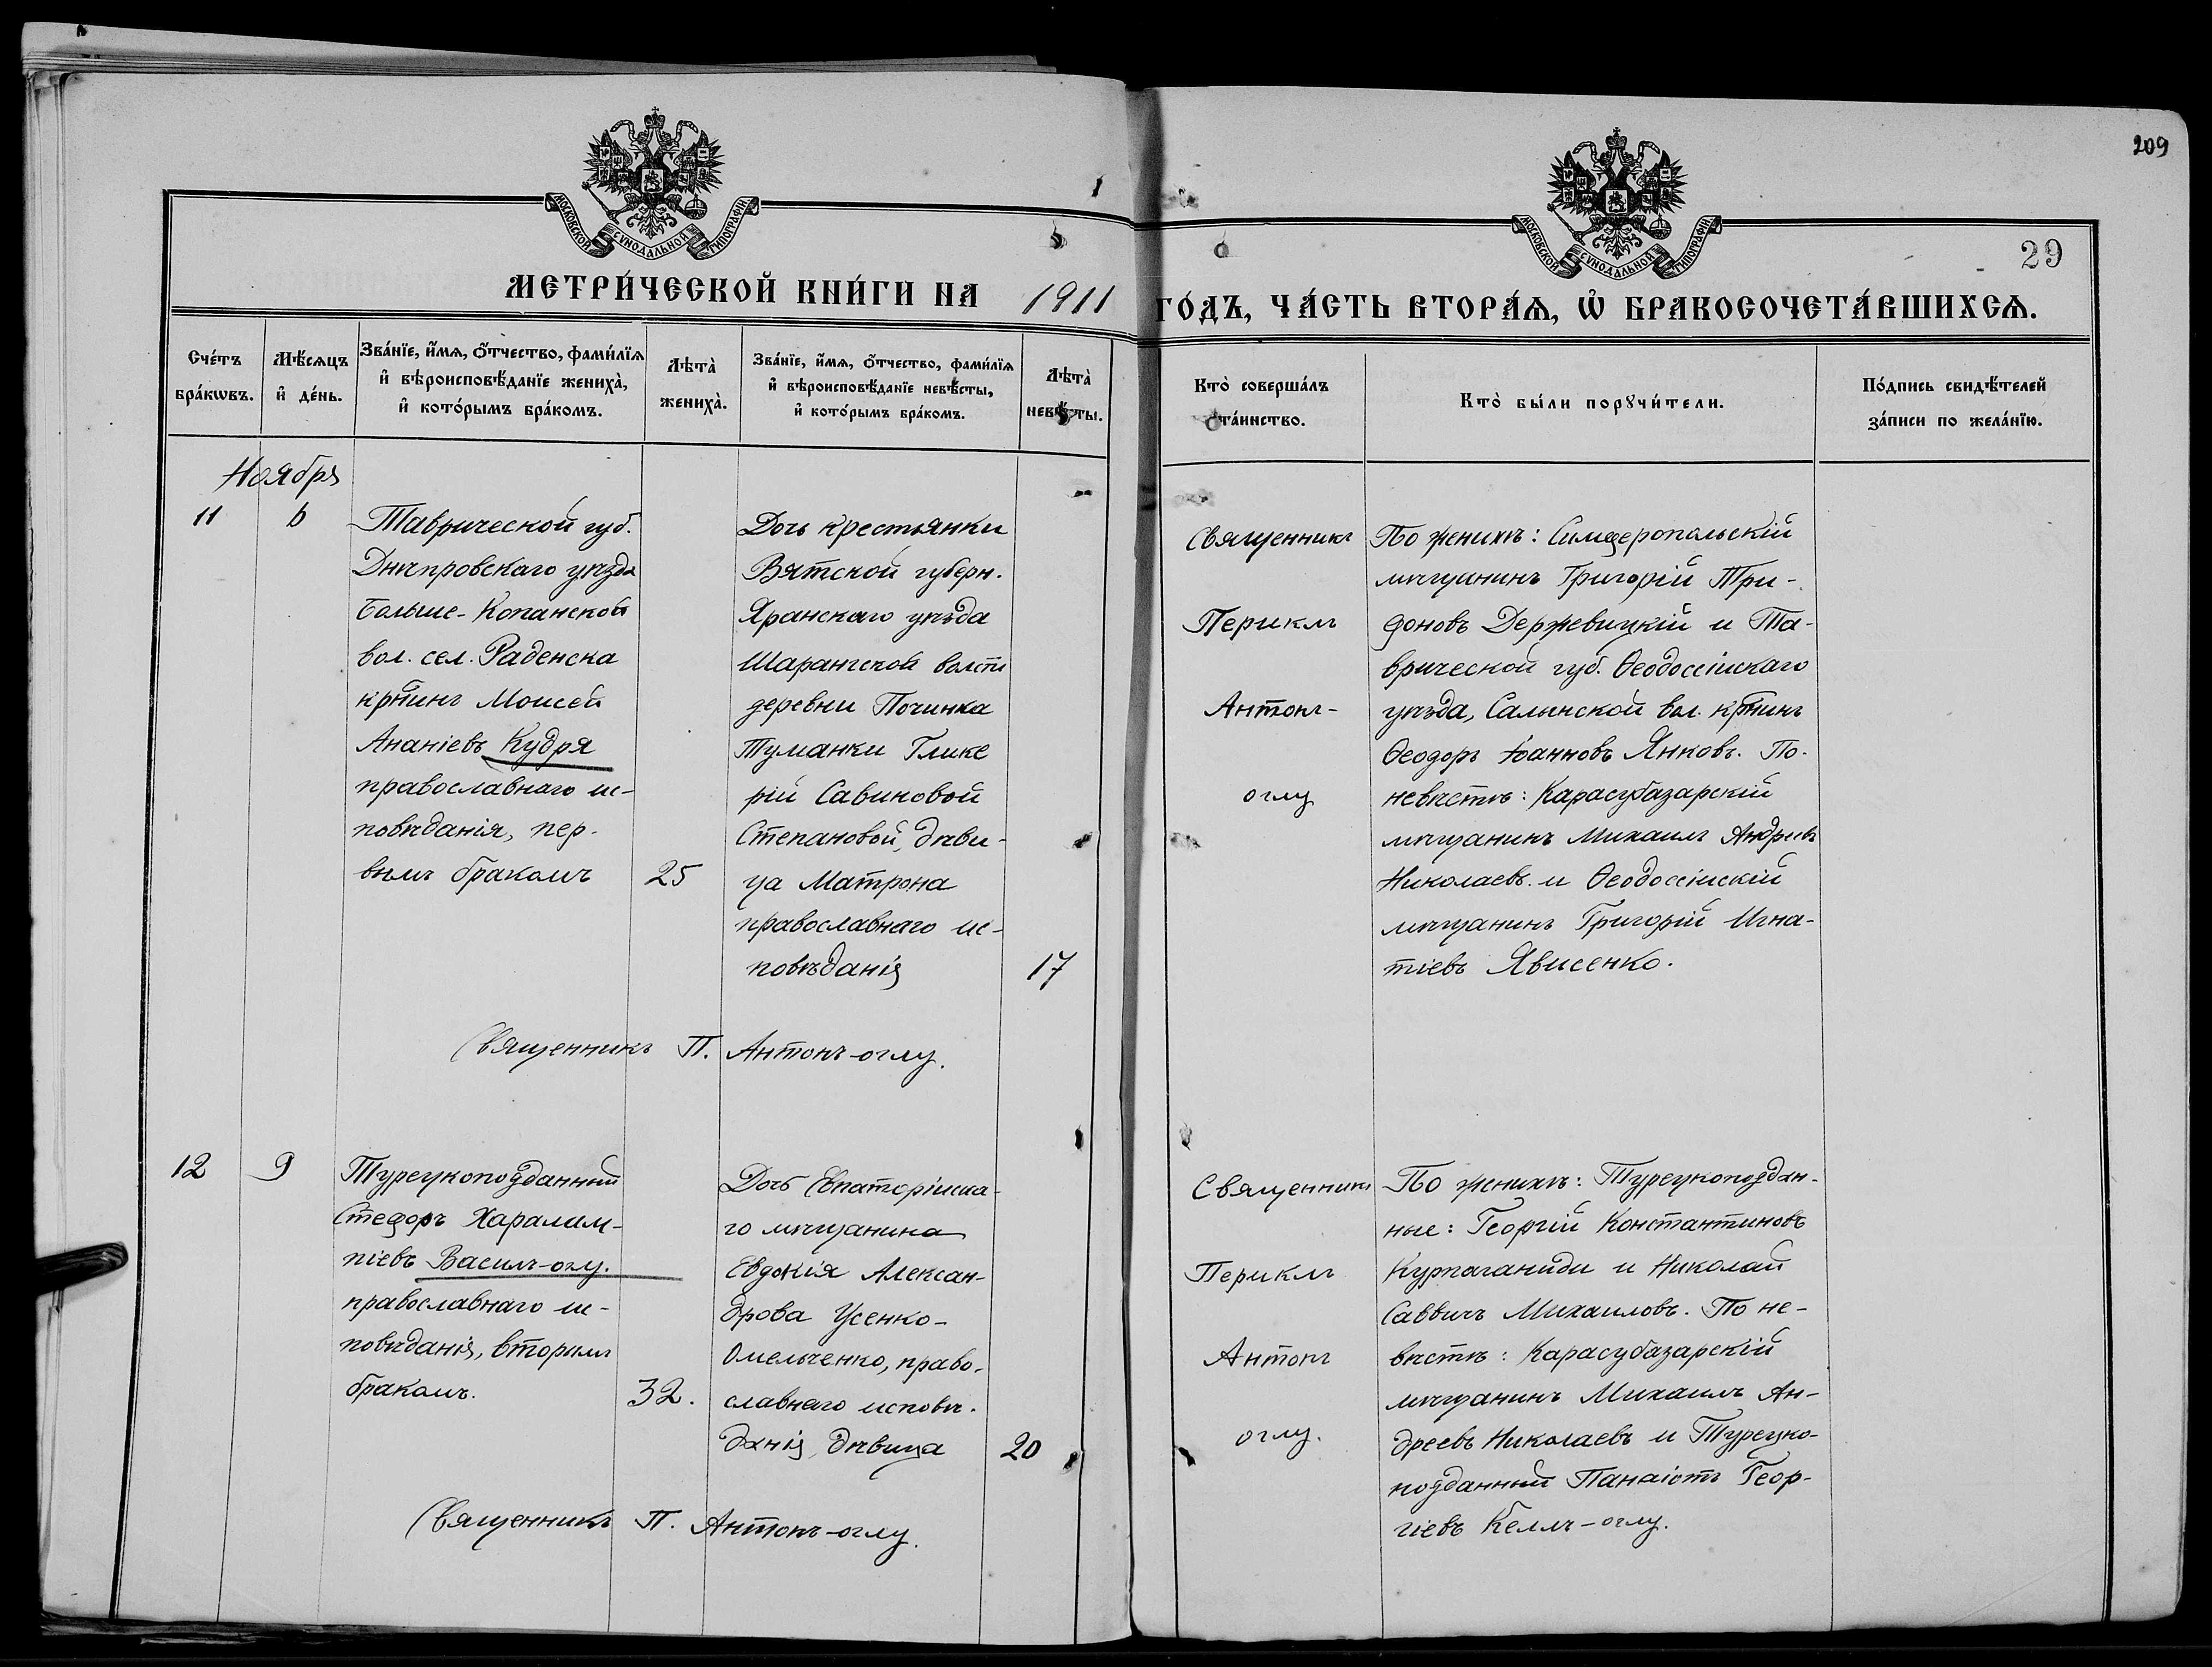 209
МОСКОВСКОЙ СУНОДАЛЬНОЙ ТИПОГРАФІИ
МОСКОВСКОЙ СУНОДАЛЬНОЙ ТИПОГРАФІИ
29
МЕТРИ́ЧЕСКОЙ КНИ́ГИ НА 1911 ГО́ДЪ, ЧА́СТЬ ВТОРА́Ѧ, Ѡ҆ БРАКОСОЧЕТА́ВШИХСѦ.
Сче́тъ бра́кѡвъ.
Мѣ́сяцъ и҆ де́нь.
Зва́нїе, и҆́мѧ, ѻ҆́тчество, фами́лїѧ
и҆ вѣроисповѣ́данїе жениха̀,
и҆ кото́рымъ бра́комъ.
Лѣта̀ жениха̀.
Зва́нїе, и҆́мѧ, ѻ҆́тчество, фами́лїѧ
и҆ вѣроисповѣ́данїе невѣ́сты,
и҆ кото́рымъ бра́комъ.
Лѣта̀ невѣ́сты.
Кто̀ соверша́лъ та́инство.
Кто̀ бы́ли порꙋчи́тели.
По́дпись свидѣ́телей
за́писи по жела́нїю.
Ноября
11
6
Таврической губ.
Днѣпровскаго уѣзда
Больше-Копанской
вол. сел. Раденска
кр̃нинъ Моисей
Ананіевъ Кудря
православнаго ис-
повѣданія, пер-
вымъ бракомъ
25
Дочь крестьянки
Вятской губерн.
Яранскаго уѣзда
Шарангской волсти
деревни Починка
Туманки Глике
ріи Савиновой
Степановой, дѣви-
ца Матрона
православнаго ис-
повѣданія
17
Священникъ
Периклъ
Антонъ-
оглу
По женихѣ: Симферопольскій
мѣщанинъ Григорій Три-
фоновъ Держевицкій и Та-
врической губ. Ѳеодосійскаго
уѣзда, Салынской вол. кр̃нинъ
Ѳеодоръ Іоанновъ Янковъ. По-
невѣстѣ: Карасубазарскій
мѣщанинъ Михаилъ Андреевъ
Николаевъ. и Ѳеодоссійскій
мѣщанинъ Григорій Игна-
тіевъ Явисенко.
Священникъ П. Антонъ-оглу.
12
9
Турецкоподданный
Стефоръ Харалам-
піевъ Василъ-оглу.
православнаго ис-
повѣданія, вторымъ
бракомъ.
32.
Дочь Евпаторійска-
го мѣщанина
Евдокія Алексан-
дрова Усенко-
Омельченко, право-
славнаго исповѣ-
данія, дѣвица
20
Священникъ
Периклъ
Антонъ
оглу.
По женихѣ: Турецкоподдан-
ные: Георгій Константиновъ
Курпаганиди и Николай
Саввичъ Михаиловъ. По не-
вѣстѣ: Карасубазарскій
мѣщанинъ Михаилъ Ан-
дреевъ Николаевъ и Турецко-
подданный Панаіотъ Геор-
гіевъ Келлъ-оглу.
Священникъ П. Антонъ-оглу.